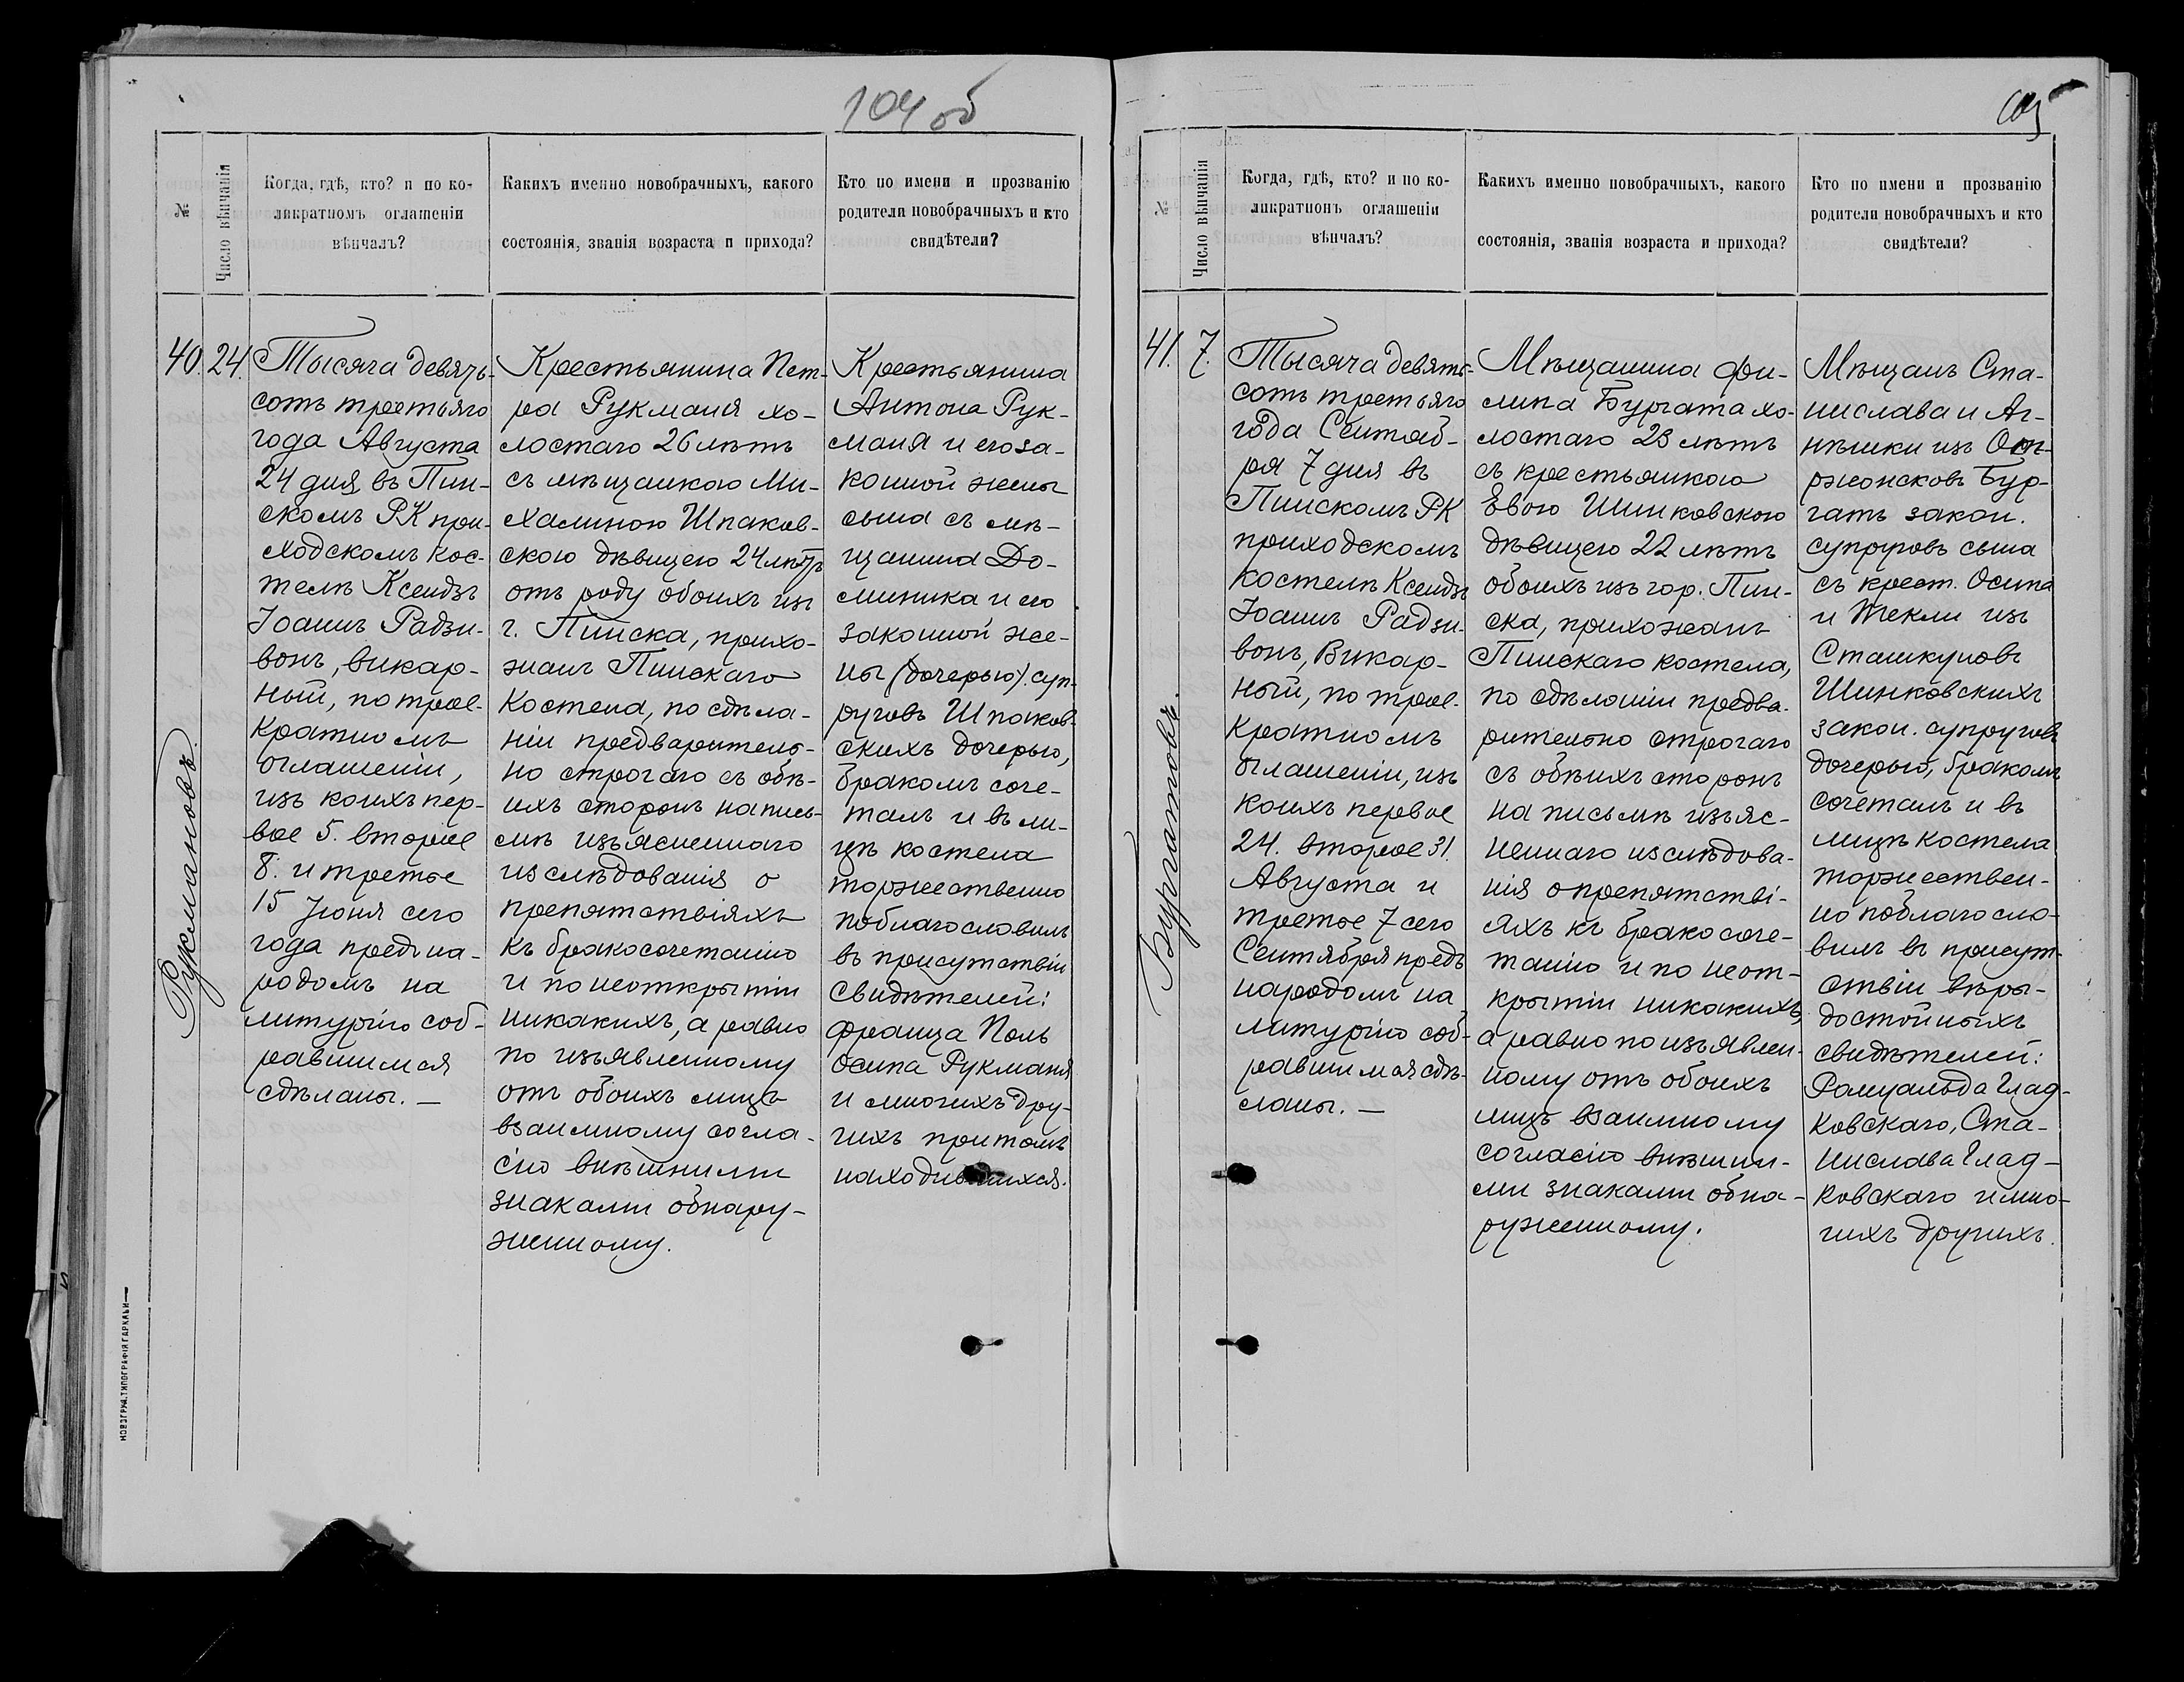 104 об
№
Число вѣнчанія
Когда, гдѣ, кто? и по ко-
ликратномъ оглашеніи
вѣнчалъ?
Какихъ именно новобрачныхъ, какого
состоянія, званія возраста и прихода?
Кто по имени и прозванію
родители новобрачныхъ и кто
свидѣтели?
Рукмановъ.
40. 24.
Тысяча девять-
сотъ третьяго
года Августа
24 дня въ Пин-
скомъ РК при-
ходскомъ кос-
телѣ Ксендзъ
Іоаннъ Радзи-
вонъ, викар-
ный, по трое-
кратномъ
оглашеніи,
изъ коихъ пер-
вое 5. второе
8. и третье
15 Іюня сего
года предъ на-
родомъ на
литургію соб-
равшимся
сдѣланы. —
Крестьянина Пет-
ра Рукманя хо-
лостаго 26 лѣтъ
съ мѣщанкою Ми-
халиною Шпаков-
скою дѣвицею 24 лѣтъ
отъ роду обоихъ изъ
г. Пинска, прихо-
жанъ Пинскаго
Костела, по сдѣла-
ніи предваритель-
но строгаго съ обѣ-
ихъ сторонъ на пись-
мѣ изъясненнаго
изслѣдованія о
препятствіяхъ
къ бракосочетанію
и по неоткрытіи
никакихъ, а равно
по изъявленному
отъ обоихъ лицъ
взаимному согла-
сію внѣшними
знаками обнару-
женному.
Крестьянина
Антона Рук-
маня и его за-
конной жены
сына съ мѣ-
щанина До-
миника и его
законной же-
ны (дочерью). суп-
руговъ Шпаков-
скихъ дочерью,
бракомъ соче-
талъ и въ ли-
цѣ костела
торжественно
поблагословилъ
въ присутствіи
свидѣтелей:
Франца Поль
Осипа Рукманя
и многихъ дру-
гихъ притомъ
находившихся.
НОВОГРУД. ТИПОГРАФІЯ ГАРКАВИ
105
№
Число вѣнчанія
Когда, гдѣ, кто? и по ко-
ликратномъ оглашеніи
вѣнчалъ?
Какихъ именно новобрачныхъ, какого
состоянія, званія возраста и прихода?
Кто по имени и прозванію
родители новобрачныхъ и кто
свидѣтели?
Бургатовъ.
41. 7.
Тысяча девять-
сотъ третьяго
года Сентяб-
ря 7 дня въ
Пинскомъ РК
приходскомъ
костелѣ Ксендзъ
Іоаннъ Радзи-
вонъ, Викар-
ный, по трое-
кратномъ
оглашеніи, изъ
коихъ первое
24. второе 31.
Августа и
третье 7 сего
Сентября предъ
народомъ на
литургію соб-
равшимся сдѣ-
ланы. —
Мѣщанина Фи-
липа Бургата хо-
лостаго 23 лѣтъ
съ крестьянкою
Евою Шинковскою
дѣвицею 22 лѣтъ
обоихъ изъ гор. Пин-
ска, прихожанъ
Пинскаго костела,
по сдѣланіи предва-
рительно строгаго
съ обѣихъ сторонъ
на письмѣ изъяс-
неннаго изслѣдова-
нія о препятстві-
яхъ къ бракосоче-
танію и по неот-
крытіи никакихъ,
а равно по изъявлен-
ному отъ обоихъ
лицъ взаимному
согласію внѣшни-
ми знаками обна-
руженному.
Мѣщанъ Ста-
нислава и Аг-
нѣшки изъ
Бур-
гатъ закон.
супруговъ сына
съ крест. Осипа
и Текли изъ
Сташкуновъ
Шинковскихъ
закон. супруговъ
дочерью, бракомъ
сочеталъ и въ
лицѣ костела
торжествен-
но поблагосло-
вилъ въ присут-
ствіи вѣры-
достойныхъ
свидѣтелей:
Ромуальда Глад-
ковскаго, Ста-
нислава Глад-
ковскаго и мно-
гихъ другихъ.